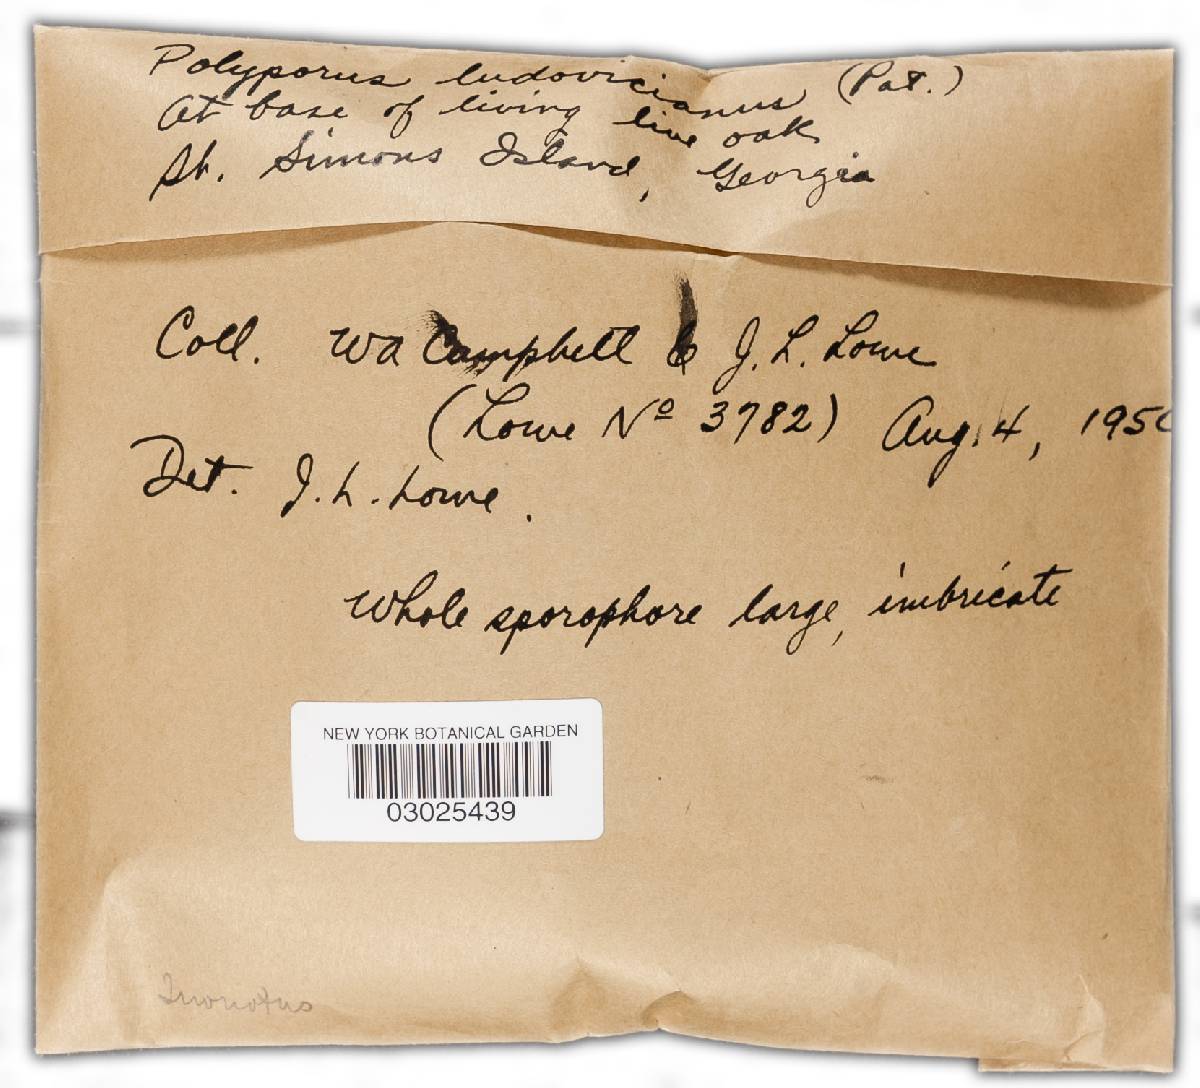 Polyporus ludovicianus (Pat.)
At base of living live oak
St. Simons Island, Georgia
Coll. WA Campbell & J. L. Lowe
(Lowe Nº 3782) Aug. 4, 195
Det. J. L. Lowe.
Whole sporophore large, imbricate
NEW YORK BOTANICAL GARDEN
03025439
Inonotus